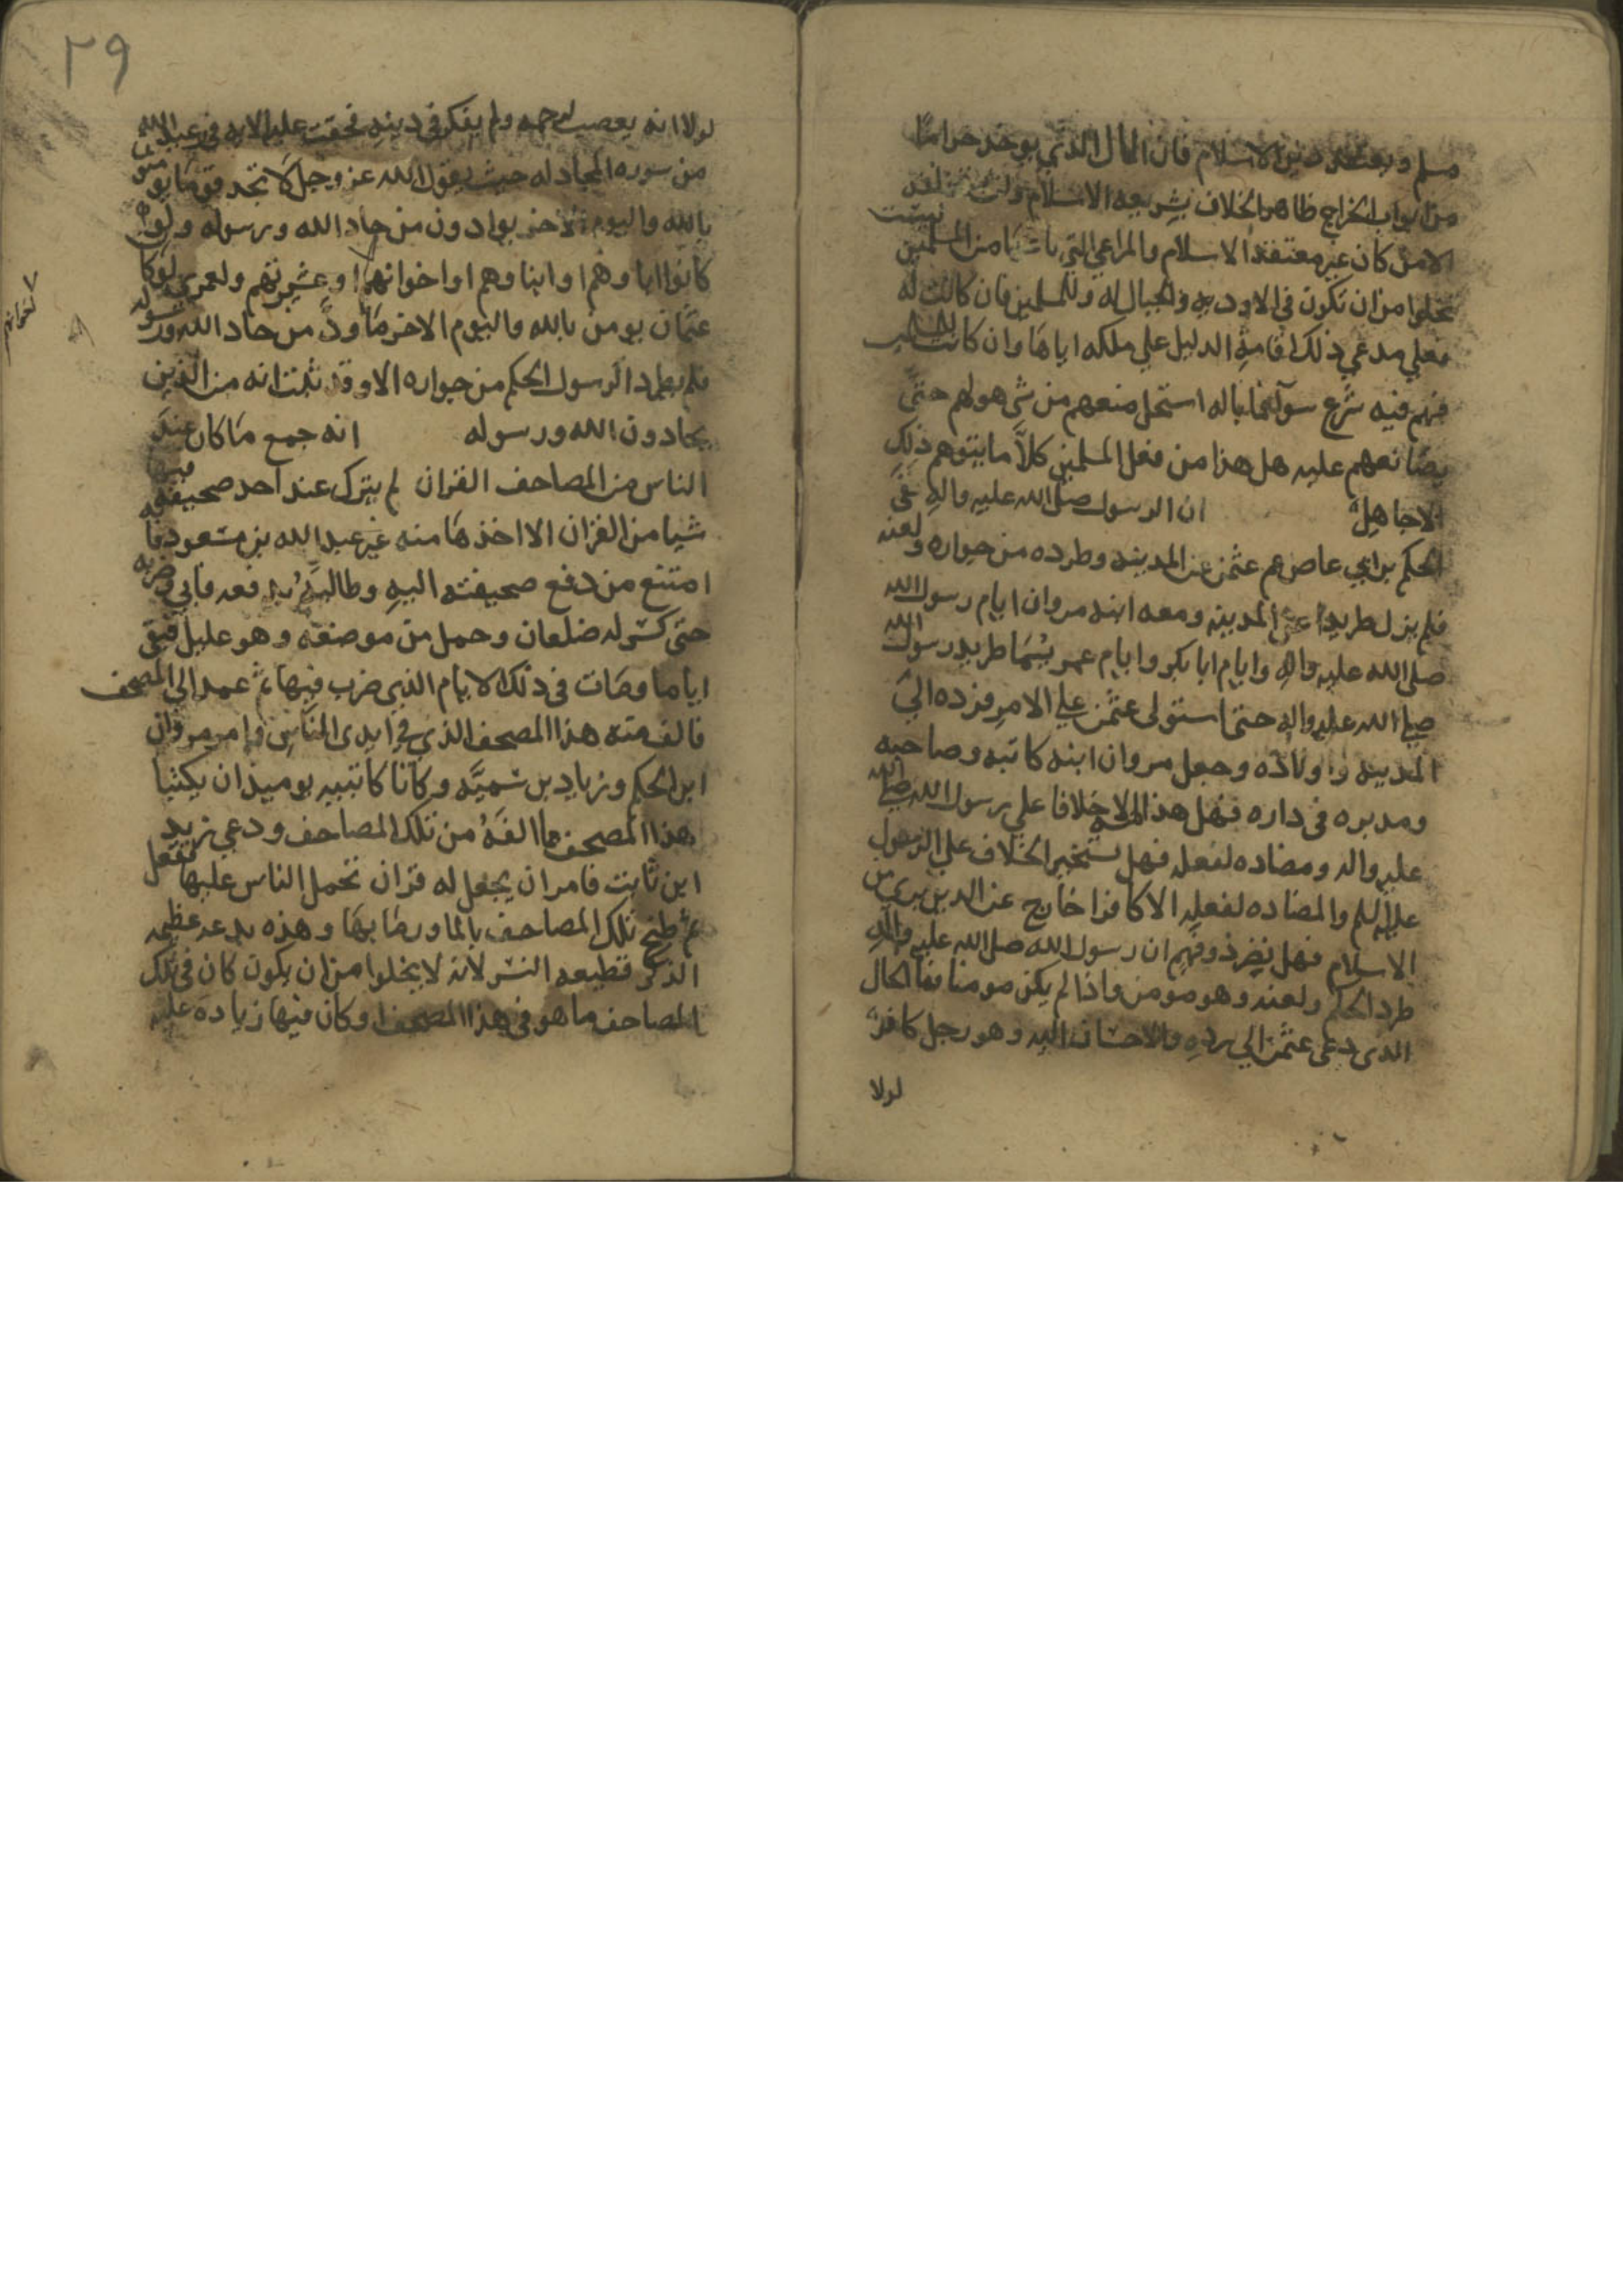 مسلم ويعتقد دين الاسلام فان المال الذي يوخذ حراما
من ابواب الخراج ظاهر الخلاف بشريعه الاسلام ولن
الا من كان غير معتقدا الاسلام والمراعي التي من المسلمين ليست
تخلوا من ان تكون في الاوديه والجبال له وللمسلمين فان كانت له
فعلي مدعي ذلك اقامة الدليل علي ملكه اياها وان كانت
فهم فيه شرع سوآ فما باله استحل منعهم من شي هو لهم حتى
يصانعهم عليه هل هذا من فعل المسلمين كلاَّ ما يتوهم ذلك
الا جاهل ان الرسول صلى الله عليه واله نفى
الحكم بن ابي عاص عم عثمن عن المدينه وطرده من جواره ولعنه
فلم يزل طريدا عن المدينه ومعه ابنه مروان ايام رسول الله
صلى الله عليه واله وايام ابا بكر وايام عمر يسما طريد رسول الله
صلي الله عليه واله حتى استولى عثمن علي الامر فرده الي
المدينه واولاده وجعل مروان ابنه كاتبه وصاحبه
ومدبره في داره فهل هذا الا خلافا علي رسول الله صلي الله
عليه واله ومضاده لفعله فهل يستخير الخلاف علي الرسول
عليه السلم والمضاده لفعله الا كافرا خارج عن الدين بري من
الاسلام فهل ذو فهم ان رسول الله صلى الله عليه واله
طرد الحكم ولعنه وهو مومن واذا لم يكن مومنا فما الحال
الذي دعى عثمن الي رده والاحسان اليه وهو رجل كافر
لولا
٢٩
لولا انه يعصب لرحمه ولم يفكر في دينه فحقت عليه الايه في
من سوره المجادله حيث يقول الله عز وجل لا تجد قوما يومنون
بالله واليوم الاخر يوادون من حاد الله ورسوله ولو
كانوا اباوهم او ابناوهم او اخوانهم او عشيرتهم ولعمري لو كا
عثمان يومن بالله واليوم الاخر ما ودَّ من حاد الله ورسوله
فلم يطرد الرسول الحكم من جواره الا وقد ثبت انه من الذين
يحادون الله ورسوله انه جمع ما كان عند
الناس من المصاحف القران لم يترك عند احد صحيفه فيها
شيا من القران الا اخذها منه غير عبد الله بن مسعود فا
امتنع من دفع صحيفته اليه وطالبه فابي وضربه
حتى كسر له ضلعان وحمل من موضعه وهو عليل فبقى
اياما ومات في ذلك الايام الذي ضرب فيها ثم عمد الي المصحف
فالف منه هذا المصحف الذي في ايدى الناس وامر مروان
ابن الحكم وزياد بن سميَّه وكانا كاتبيه يوميذ ان يكتبا
هذا المصحف مما الفهُ من تلك المصاحف ودعي زيد
ابن ثابت فامر ان يجعل له قران تحمل الناس عليها ففعل
ثم طبخ تلك المصاحف بالما ورما بها وهذه بدعه عظيمه
الذكر قطيعه النشر لانه لا يخلوا من ان يكون كان في تلك
المصاحف ما هو في هذا المصحف او كان فيها زياده عليه